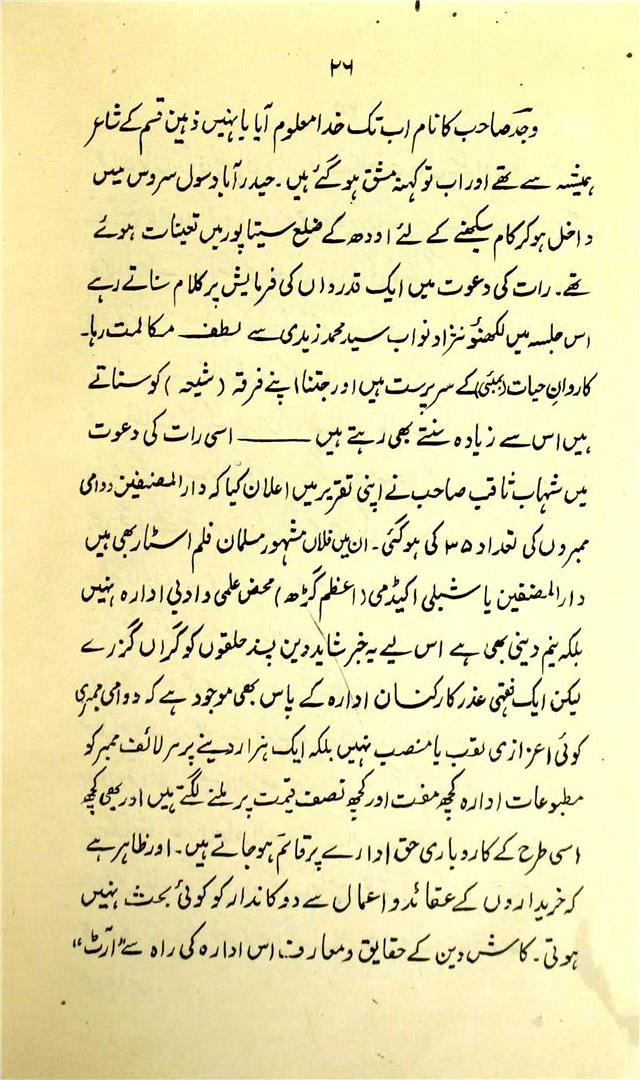 ۲۶
وجد صاحب کا نام اب تک خدا معلوم آیا یا نہیں ذہین قسم کے شاعر
ہمیشہ سے تھے اور اب تو کہنہ مشق ہو گئے ہیں۔ حیدرآباد سول سروس میں
داخل ہو کر کام سیکھنے کے لئے اودھ کے ضلع سیتاپور میں تعینات ہوئے
تھے۔ رات کی دعوت میں ایک قدرداں کی فرمایش پر کلام سناتے رہے
اس جلسہ میں لکھنؤ نژاد نواب سید محمد زیدی سے لطف مکالمت رہا۔
کاروانِ حیات (بمبئی) کے سرپرست ہیں اور جتنا اپنے فرقہ (شیعہ) کو سناتے
ہیں اس سے زیادہ سنتے بھی رہتے ہیں ——— اسی رات کی دعوت
میں شہاب ثاقب صاحب نے اپنی تقریر میں اعلان کیا کہ دارالمصنفین دوامی
ممبروں کی تعداد ۳۵ کی ہو گئی۔ ان میں فلاں مشہور مسلمان فلم اسٹار بھی ہیں
دارالمصنفین یا شبلی اکیڈمی (اعظم گڑھ) محض علمی و ادبی ادارہ نہیں
بلکہ نیم دینی بھی ہے اس لیے یہ خبر شاید دین پسند حلقوں کو گراں گزرے
لیکن ایک فقہی عذر کارکنان ادارہ کے پاس بھی موجود ہے کہ دوامی ممبری
کوئی اعزازی لقب یا منصب نہیں بلکہ ایک ہزار دینے پر ہر لائف ممبر کو
مطبوعات ادارہ کچھ مفت اور کچھ نصف قیمت پر ملنے لگتے ہیں اور بھی کچھ
اسی طرح کے کاروباری حق ادارے پر قائم ہو جاتے ہیں۔ اور ظاہر ہے
کہ خریداروں کے عقائد و اعمال سے دوکاندار کو کوئی بحث نہیں
ہوتی۔ کاش دین کے حقایق و معارف اس ادارہ کی راہ سے "آرٹ"